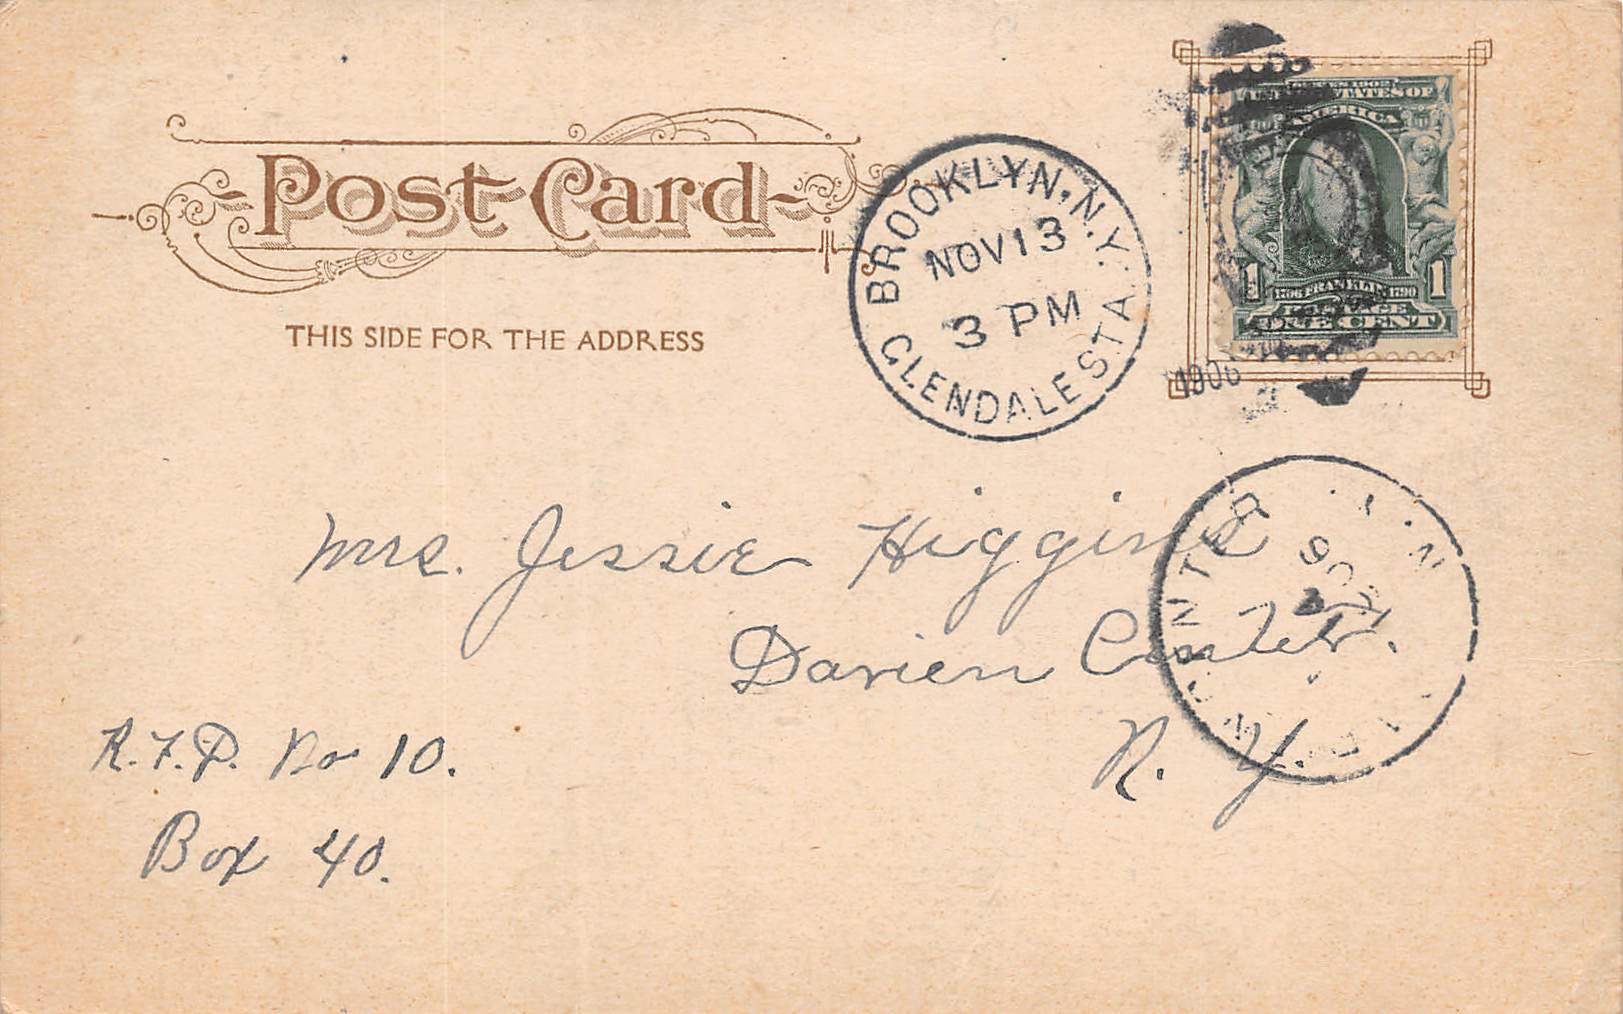 Post Card
THIS SIDE FOR THE ADDRESS
BROOKLYN, N.Y.
NOV 13
3 PM
GLENDALE STA.
1906
UNITED STATES OF
AMERICA
1 1
1706 FRANKLIN 1790
POSTAGE
ONE CENT
Mrs. Jessie Higgins
Darien Center.
N. Y.
R.F.D. No 10.
Box 40.